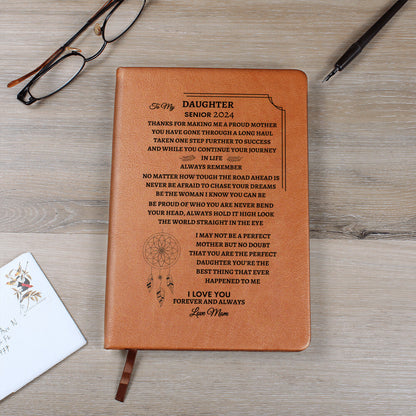 To My DAUGHTER
SENIOR 2024
THANKS FOR MAKING ME A PROUD MOTHER
YOU HAVE GONE THROUGH A LONG HAUL
TAKEN ONE STEP FURTHER TO SUCCESS
AND WHILE YOU CONTINUE YOUR JOURNEY
IN LIFE
ALWAYS REMEMBER
NO MATTER HOW TOUGH THE ROAD AHEAD IS
NEVER BE AFRAID TO CHASE YOUR DREAMS
BE THE WOMAN I KNOW YOU CAN BE
BE PROUD OF WHO YOU ARE NEVER BEND
YOUR HEAD, ALWAYS HOLD IT HIGH LOOK
THE WORLD STRAIGHT IN THE EYE
I MAY NOT BE A PERFECT
MOTHER BUT NO DOUBT
THAT YOU ARE THE PERFECT
DAUGHTER YOU'RE THE
BEST THING THAT EVER
HAPPENED TO ME
I LOVE YOU
FOREVER AND ALWAYS
Love Mom